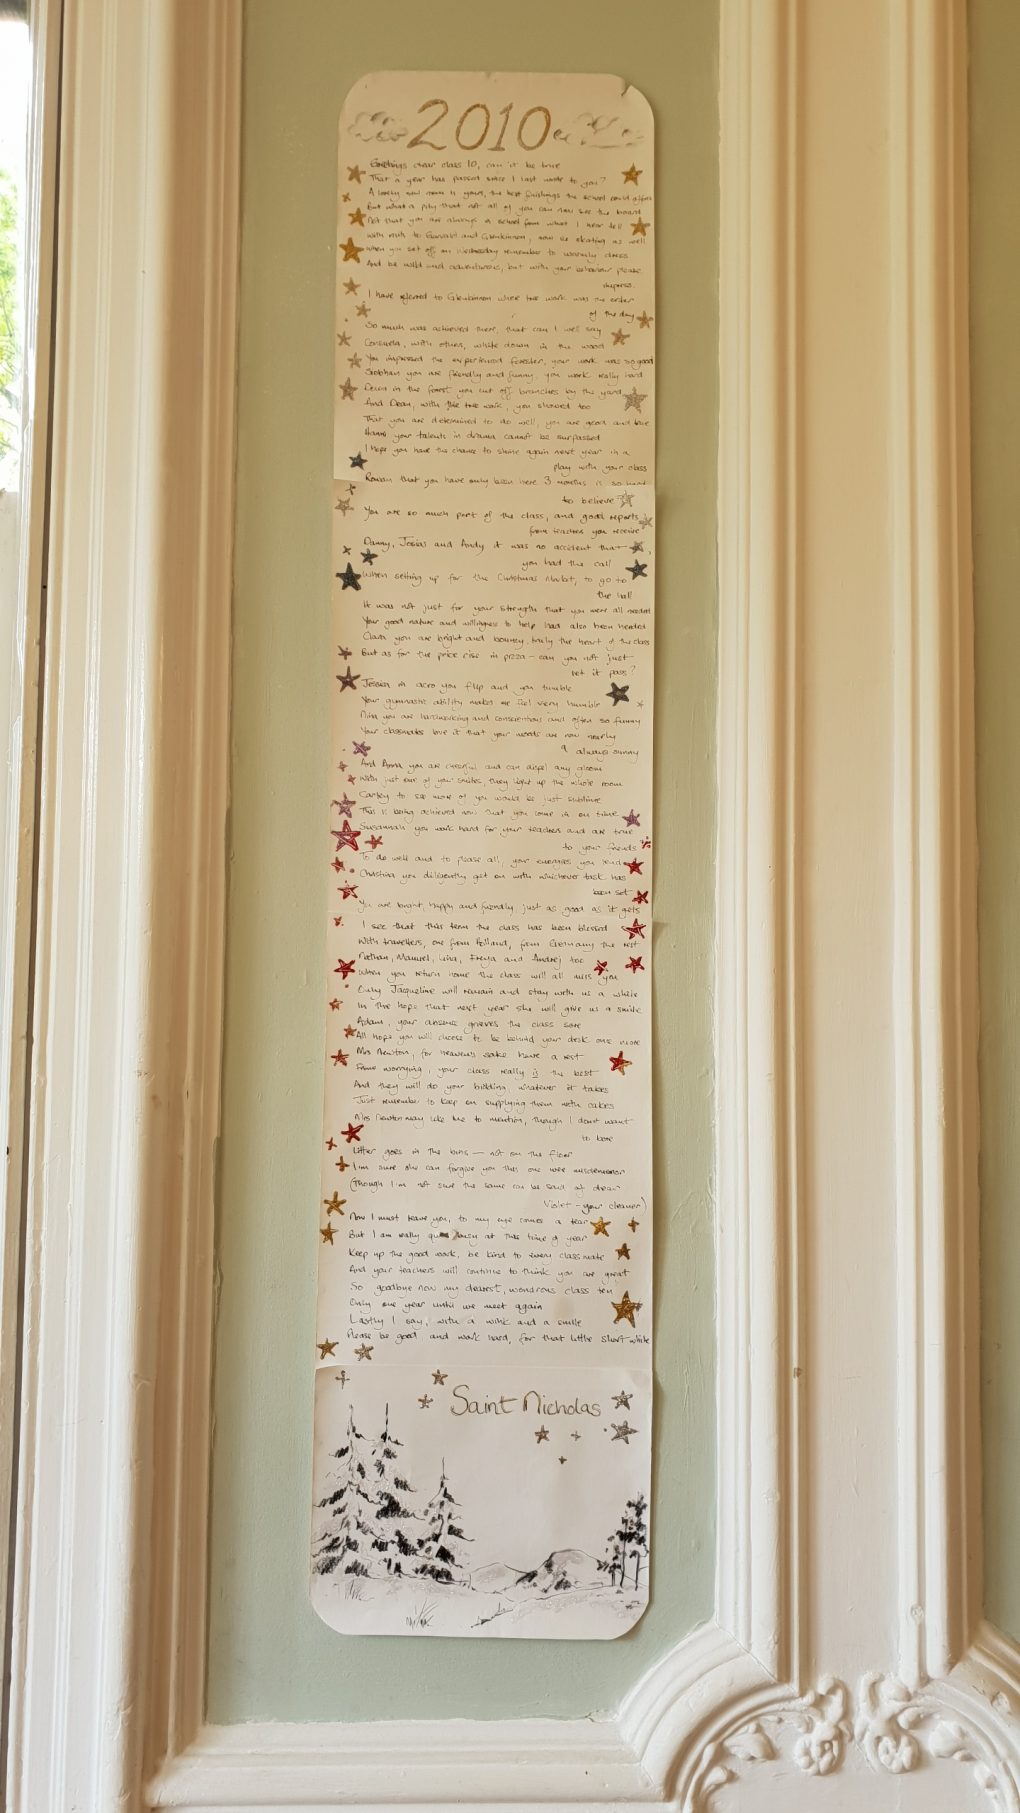 2010
Greetings dear class 10, can it be true
That a year has passed since I last wrote to you?
A lovely new room is yours, the best finishings the school could afford
But what a pity that not all of you can now see the board
Not that you are always in school from what I hear tell
With trips to Garvald and Glenkinnon, now ice skating as well
When you set off on Wednesday remember to warmly dress
And be wild and adventurous, but with your behaviour please
impress.
I have referred to Glenkinnon where tree work was the order
of the day
So much was achieved there, that can I well say
Consuela, with others, whittled down in the wood
You impressed the experienced forester, your work was so good
Siobhan you are friendly and funny, you work really hard
in the forest you cut off branches by the yard
And Dean, with the tree work, you showed too
That you are determined to do well, you are good and true
your talents in drama cannot be surpassed
I hope you have the chance to shine again next year in a
play with your class
Rowan that you have only been here 3 months is so hard
to believe
You are so much part of the class, and good reports
from teachers you receive
Danny, Josias and Andy it was no accident that
you had the call
When setting up for the Christmas Market, to go to
the hall
It was not just for your strength that you were all needed
Your good nature and willingness to help had also been heeded
Clara you are bright and bouncy, truly the heart of the class
But as for the price rise in pizza – can you not just
let it pass?
in acro you flip and you tumble
Your gymnastic ability makes me feel very humble
Nina you are hardworking and conscientious and often so funny
Your classmates love it that your moods are now nearly
always sunny
And Anna you are cheerful and can dispel any gloom
With just one of your smiles, they light up the whole room
Carley to see more of you would be just sublime
This is being achieved now that you come in on time
Susannah you work hard for your teachers and are true
to your friends
To do well and to please all, your energies you lend
Christina you diligently get on with whichever task has
been set
You are bright, happy and friendly, just as good as it gets
I see that this term the class has been blessed
With travellers, one from Holland, from Germany the rest
Nathan, Manuel, Lina, Freya and Andrej too
When you return home the class will all miss you
Only Jacqueline will remain and stay with us a while
In the hope that next year she will give us a smile
Adam, your absence grieves the class sore
All hope you will choose to be behind your desk once more
Mrs Newton, for heaven's sake have a rest
From worrying, your class really is the best
And they will do your bidding, whatever it takes
Just remember to keep on supplying them with cakes
Mrs Newton may like me to mention, though I don't want
to bore
Litter goes in the bins – not on the floor
I'm sure she can forgive you this one wee misdemeanor
(Though I'm not sure the same can be said of dear
Violet – your cleaner)
Now I must leave you, to my eye comes a tear
But I am really quite busy at this time of year
Keep up the good work, be kind to every classmate
And your teachers will continue to think you are great
So goodbye now my dearest, wondrous class ten
Only one year until we meet again
Lastly I say, with a wink and a smile
Please be good and work hard, for that little short while
Saint Nicholas